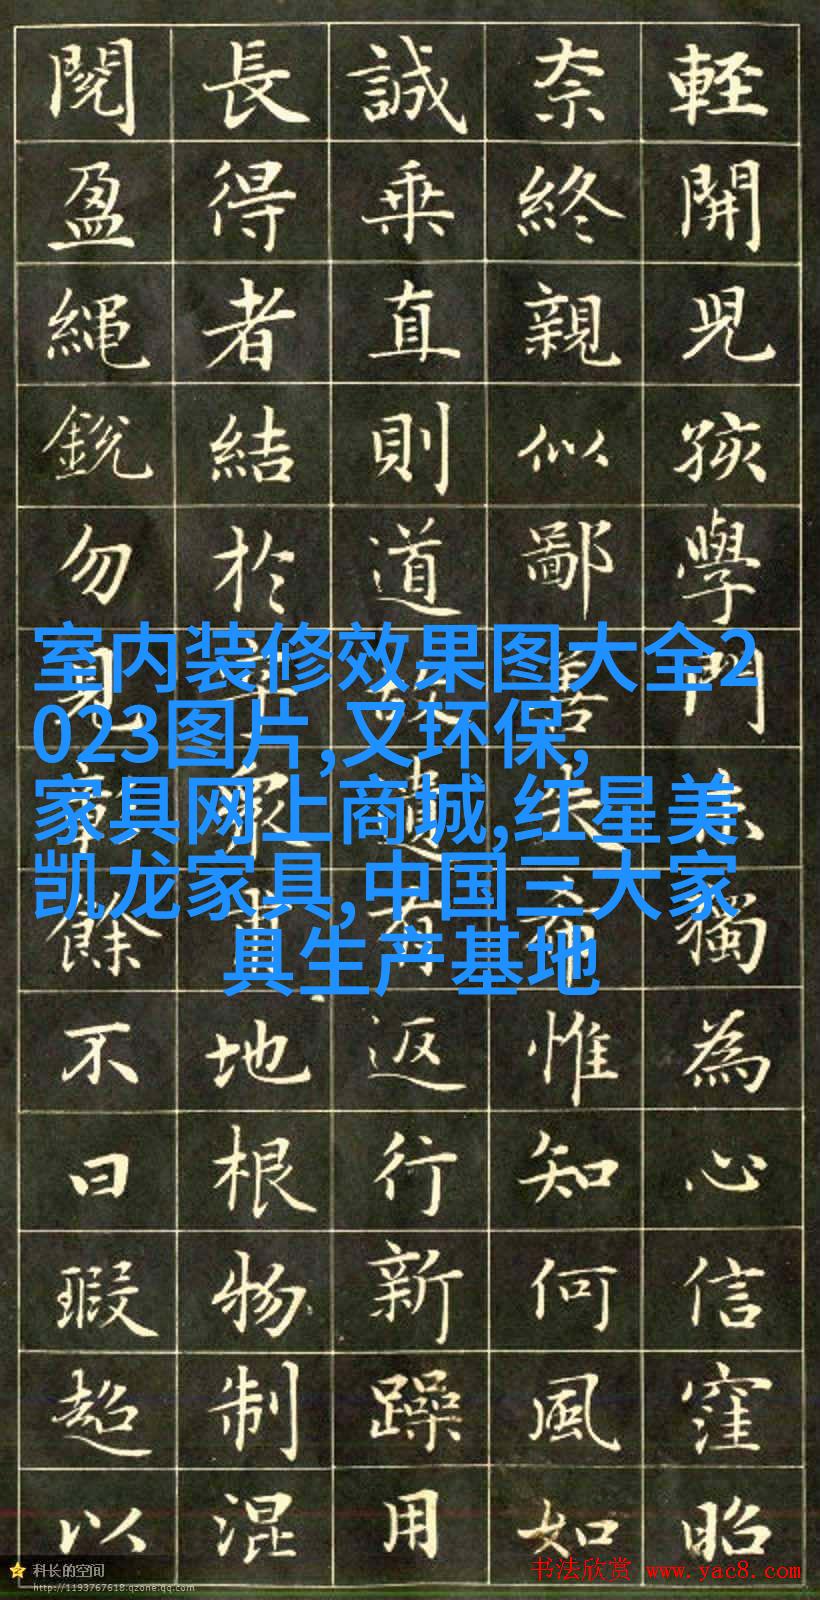 輕開兒孩學門獨為心信窪昭
奈終親似鄙善失惟知何風如
誠乗直則道有返行新躁用
長得者結於地根物制混
閲盈繩銳勿見餘不曰瑕超以
室内装修效果图大全2
023图片,又环保,
家具网上商城,红星美
凯龙家具,中国三大家
具生产基地
科长的空间
http://1193767618.qzone.qq.com
书法欣赏 www.yac8.com